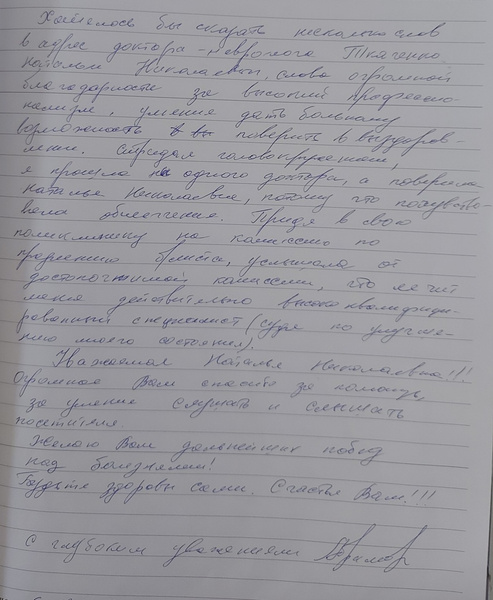 Хотелось бы сказать несколько слов
в адрес доктора-невролога Ткаченко
Натальи Николаевны, слова огромной
благодарности за высокий професси-
нализм, умение дать больному
возможность поверить в выздоров-
ление. Страдая головокружением,
я прошла не одного доктора, а поверила
Наталье Николаевне, потому что почувство-
вала облегчение. Придя в свою
поликлинику на комиссию по
продлению б/листа, услышала от
достопочтимой комиссии, что лечит
меня действительно высококвалифици-
рованный специалист (судя по улучше-
нию моего состояния).
Уважаемая Наталья Николаевна!!!
Огромное Вам спасибо за помощь,
за умение слушать и слышать
посетителя.
Желаю Вам дальнейших побед
над болезнями!
Будьте здоровы сами. Счастья Вам!!!
С глубоким уважением